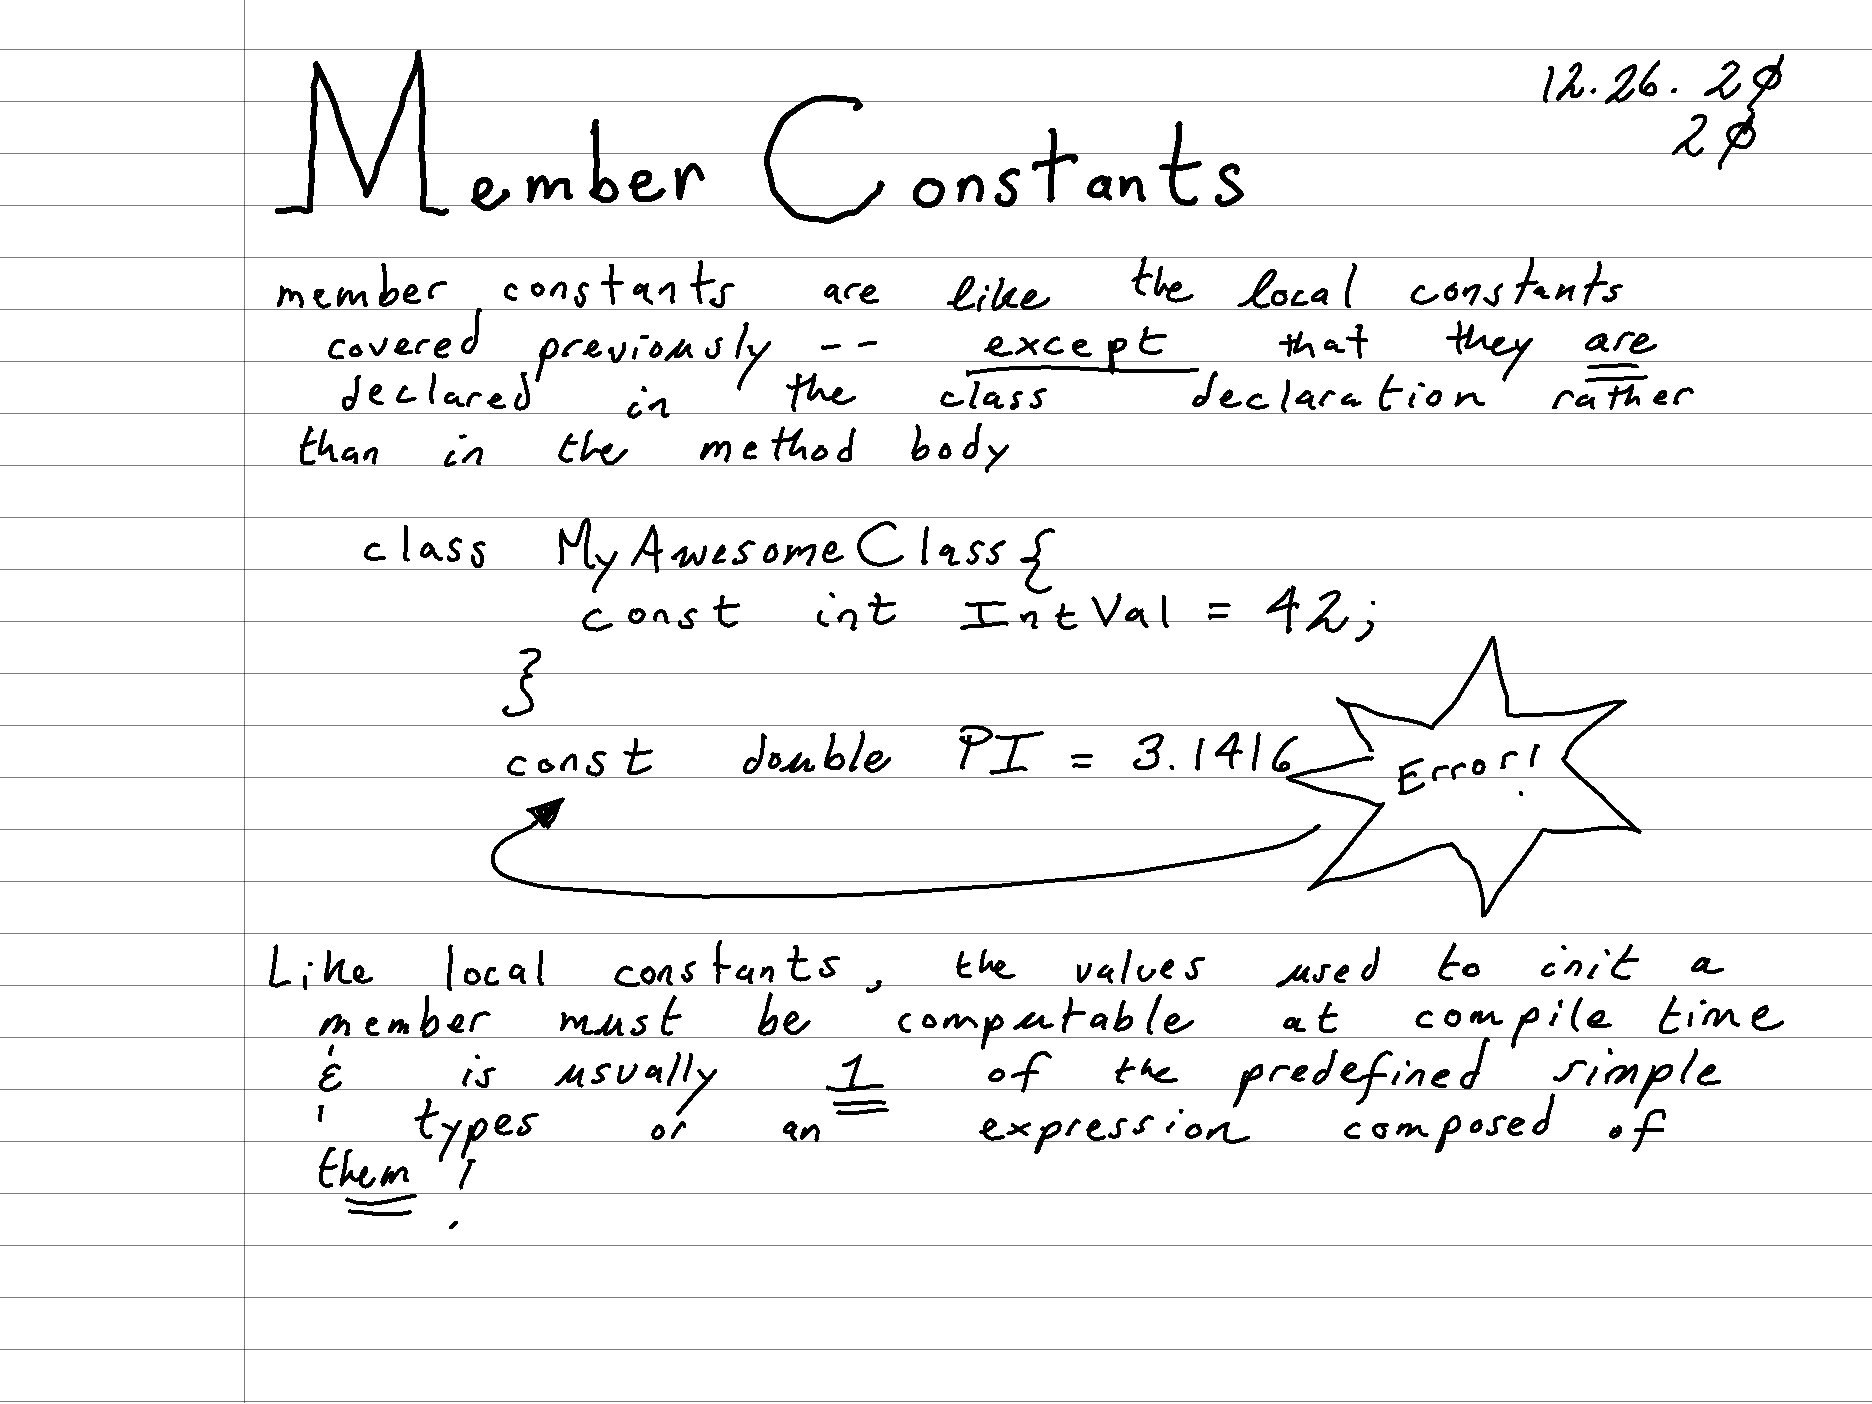 12.26.20
20
Member Constants
member constants are like the local constants
covered previously -- except that they are
declared in the class declaration rather
than in the method body
class MyAwesomeClass{
const int IntVal = 42;
}
const double PI = 3.1416
Error!
Like local constants, the values used to init a
member must be computable at compile time
& is usually 1 of the predefined simple
types or an expression composed of
them!